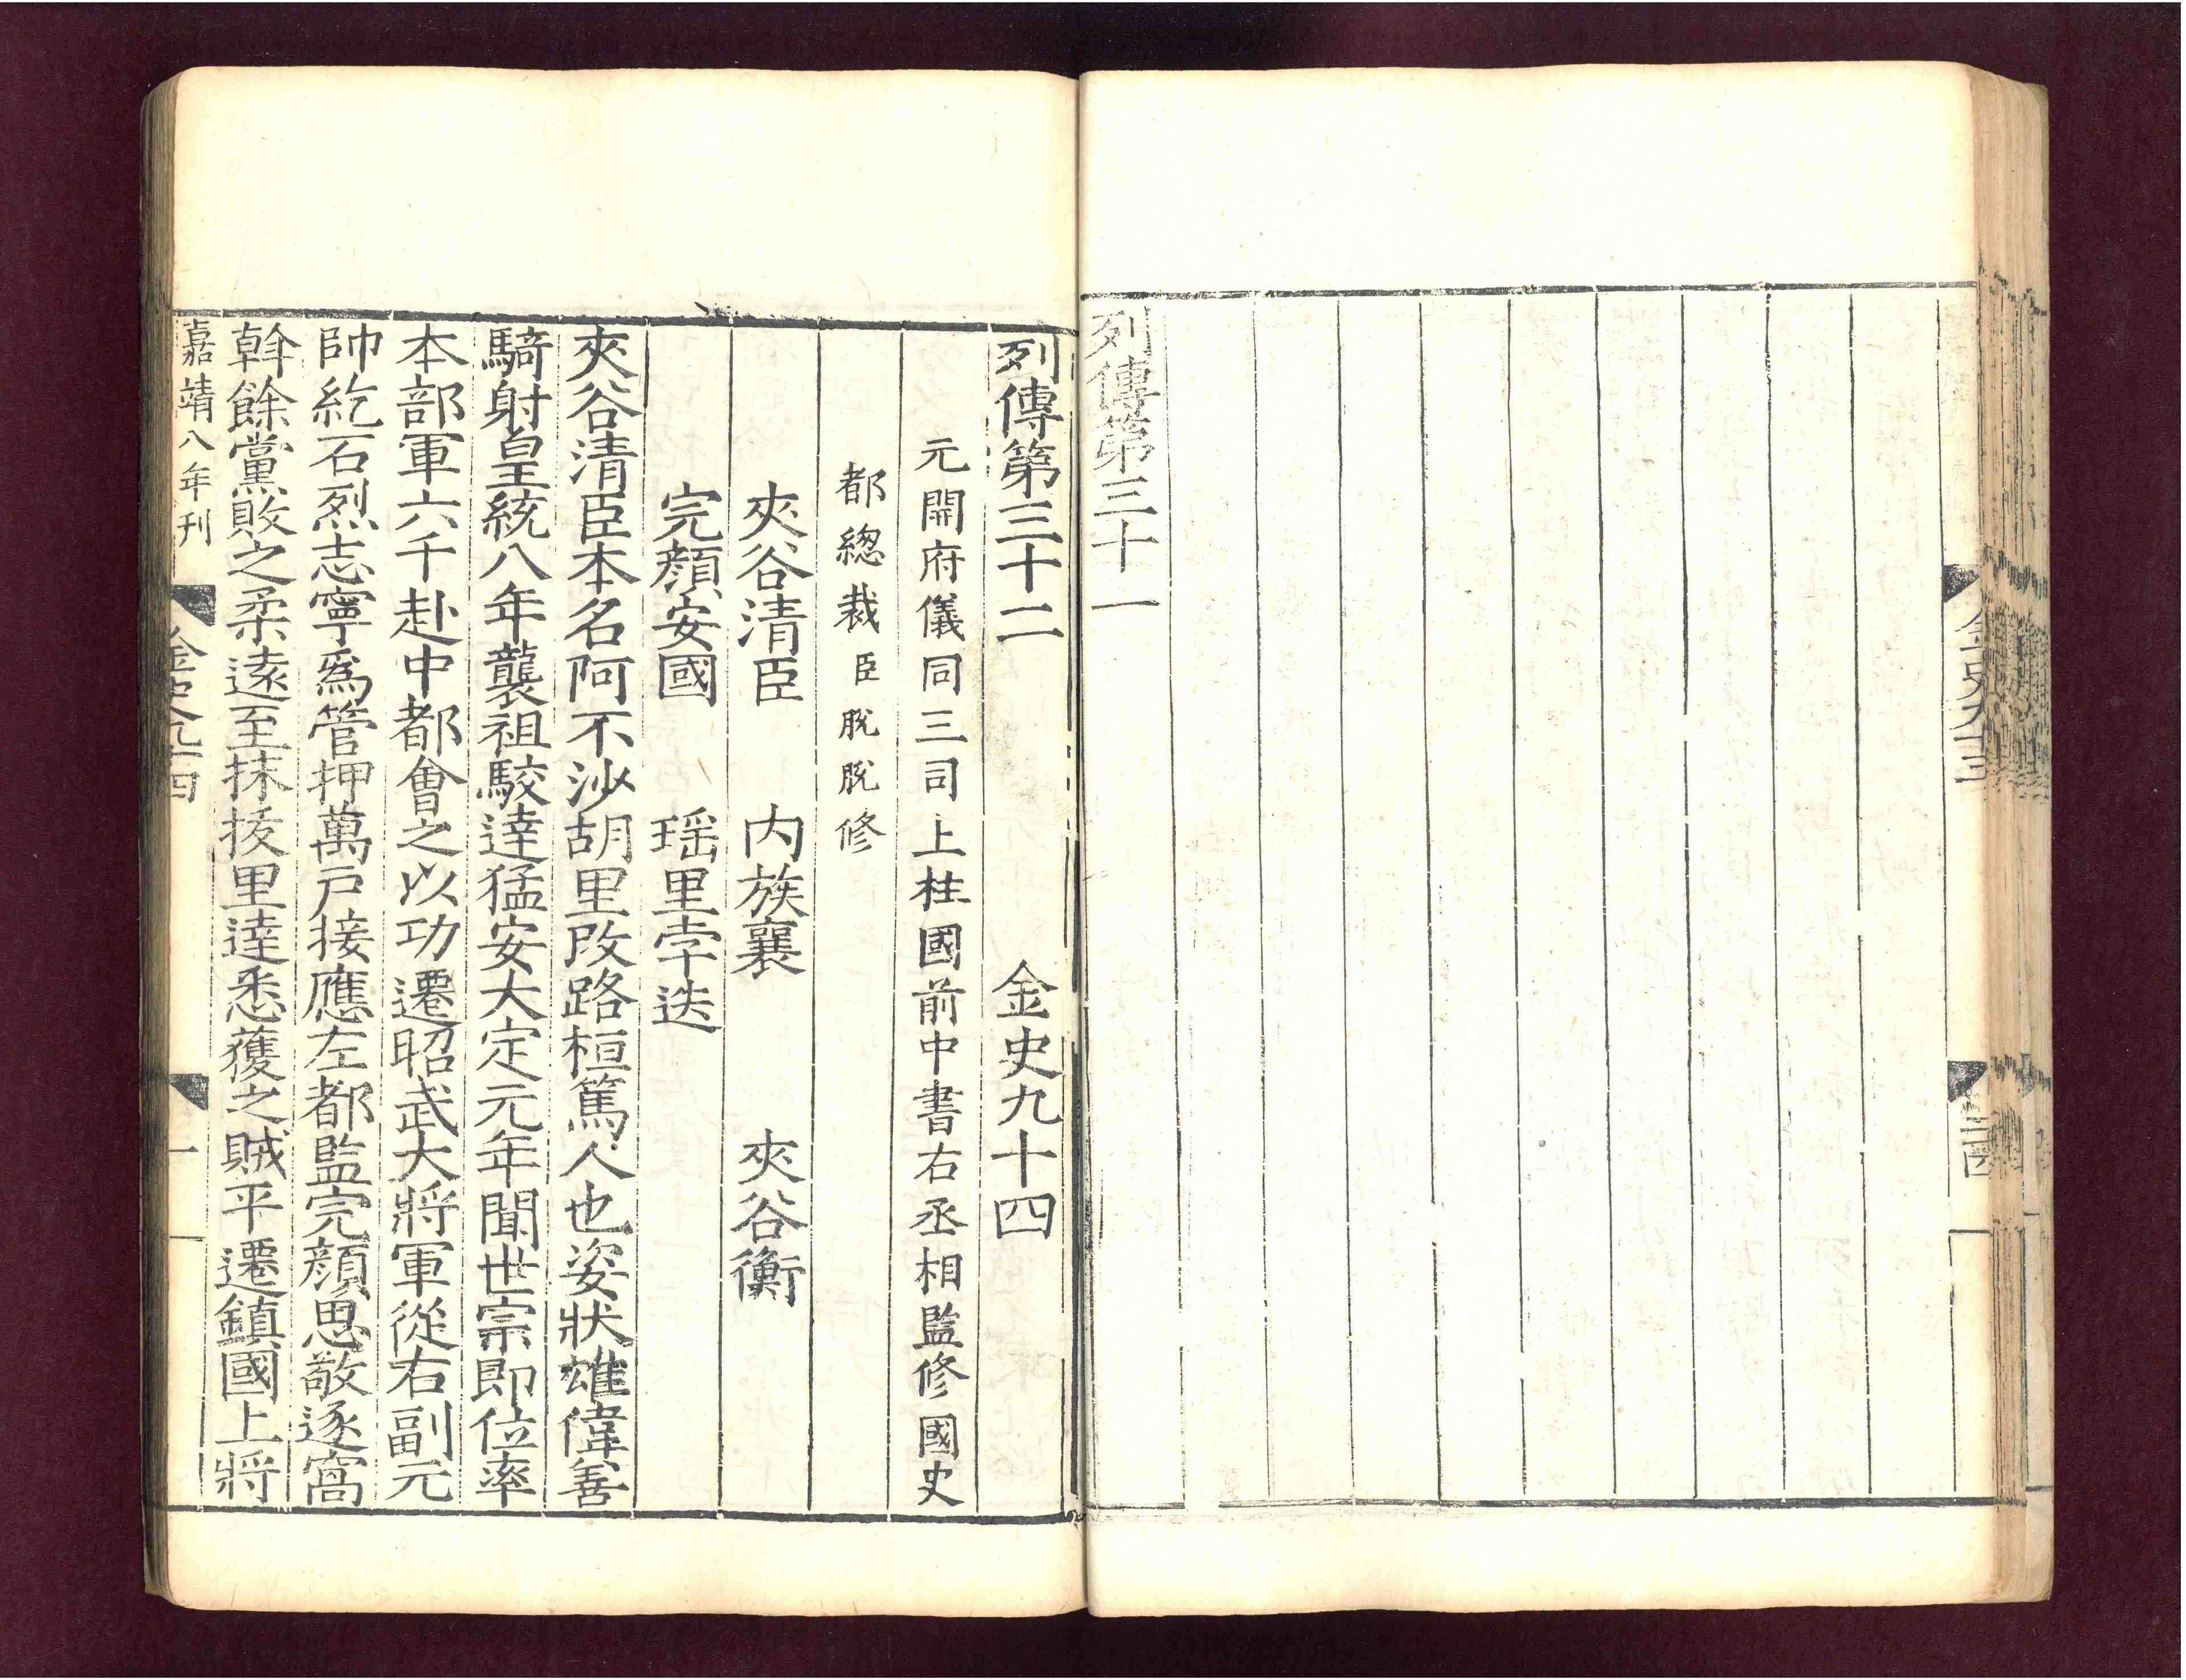 金史九十三
二十四
列傳第三十一
列傳第三十二 金史九十四
元開府儀同三司上柱國前中書右丞相監修國史
都總裁臣脫脫修
夾谷清臣 内族襄 夾谷衡
完顏安國 瑶里孛迭
夾谷清臣本名阿不沙胡里改路桓篤人也姿狀雄偉善
騎射皇統八年襲祖駮達猛安大定元年聞世宗即位率
本部軍六千赴中都會之以功遷昭武大將軍從右副元
帥紇石烈志寧爲管押萬戸接應左都監完顏思敬逐窩
斡餘黨敗之柔遠至抹拔里達悉獲之賊平遷鎮國上將
嘉靖八年刊
金史九十四
一